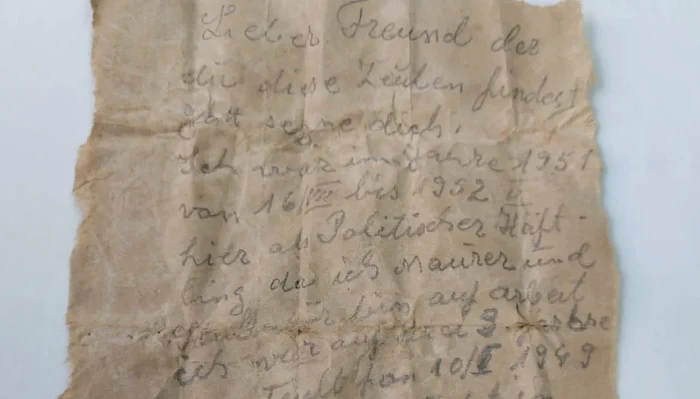 Lieber Freund der
du diese Zeilen findest
Gott segne dich.
Ich war im Jahre 1951
von 16/III bis 1952 II
hier als Politischer Häft-
ling da ich Maurer und
bin auf arbeit
ich war auf 3 Jahre
fon 10/I 1949